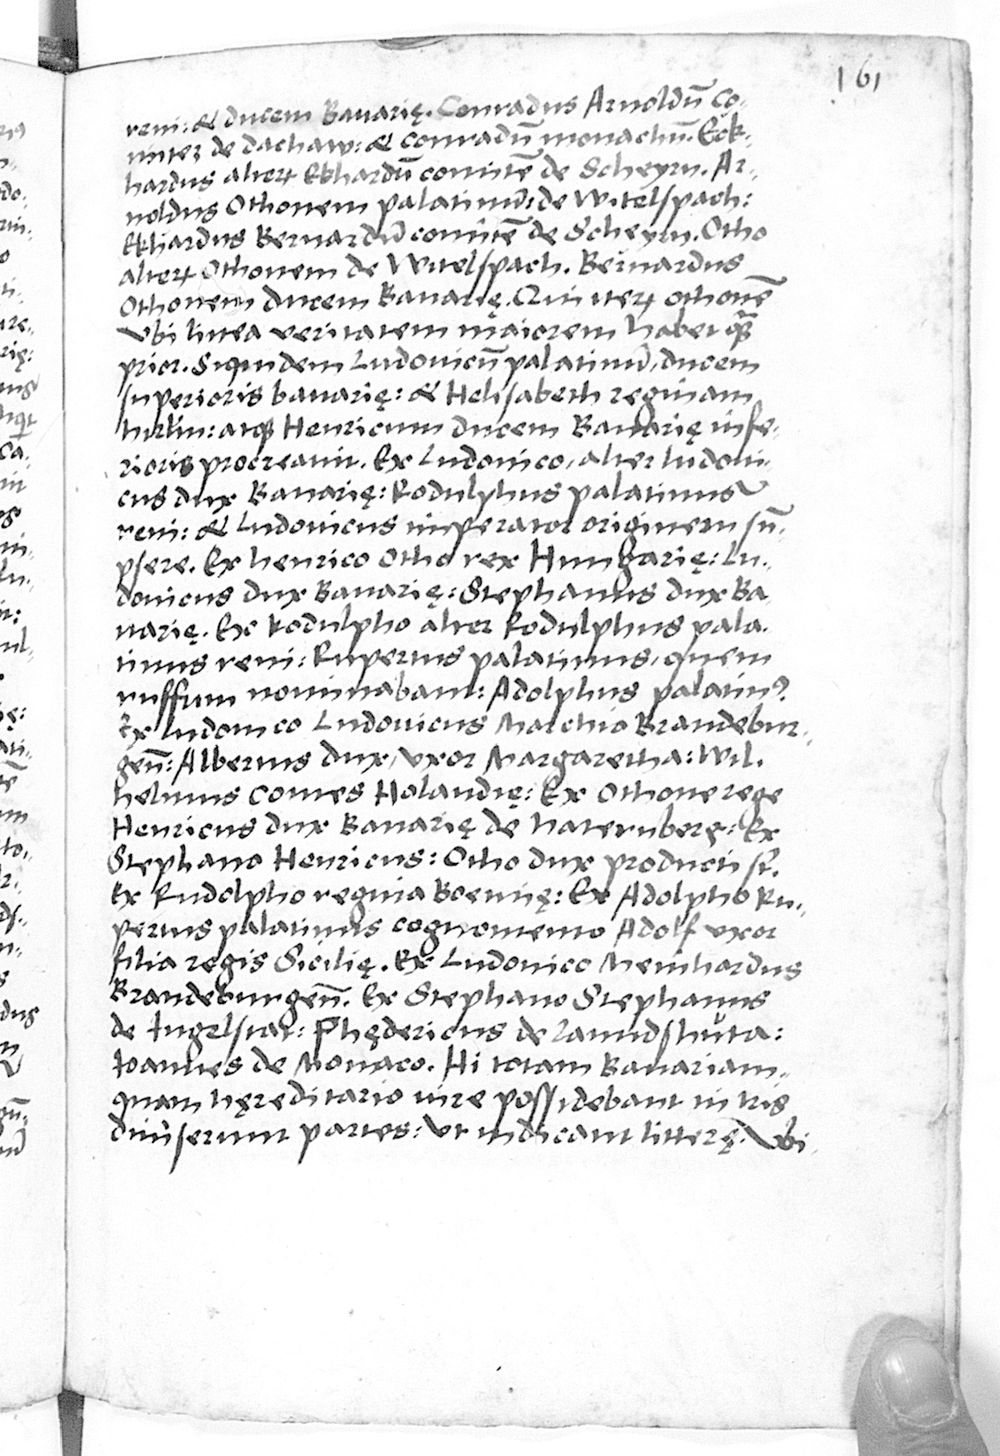 161
reni: & ducem Bauarię. Conradus Arnoldū co-
mitez de dachaw: & conradū monachū. Eck-
hardus alterz Ekhardū comitē de Scheyrn. Ar-
noldus Othonem palatinū: de Witelspach:
Ekhardus Bernardū comitē de Scheyrn. Otho
alterz Othonem de Witelspach. Bernardus
Othonem ducem Bauarię. Qui iterz othonē
Vbi linea veritatem maiorem habet
prior. Siquidem Ludouicū palatinū, ducem
superioris bauarię: & Helisabeth reginam
hirlin: atq Henricum ducem Bauarię infe-
rioris procreauit. Ex Ludouico, alter ludoui-
cus dux Bauarię: Rodulphus palatinus
reni: & Ludouicus imperator originem sū-
psere. Ex henrico Otho rex Hungarię: Lu-
douicus dux Bauarię: Stephanus dux Ba
uarię. Ex Rodulpho alter Rodulphus pala-
tinus reni: Rupertus palatinus, quem
ruffum nominabant: Adolphus palatin9.
Ex ludouico Ludouicus Marchio Brandebur-
geñ: Albertus dux, vxor Margaretha: Wil-
helmus comes Holandię: Ex Othone rege
Henricus dux Bauarię de Naternberg: Ex
Stephano Henricus: Otho dux producti sī.
Ex Rudolpho regina Boemię: Ex Adolpho Ru-
pertus palatinus cognomento Adolf vxor
filia regis Sicilię. Ex Ludouico Meinhardus
Brandeburgeñ. Ex Stephano Stephanus
de Ingelstat: Phędericus de lanndshůta:
Ioannes de Monaco. Hi totam Bauariam-
quam hęreditario iure possidebant in tris
diuiserunt partes: Vt indicant litterę. Vbi-